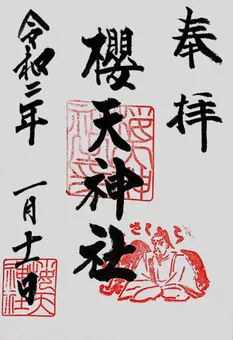 奉拝
櫻天神社
さくら
令和二年
一月十一日